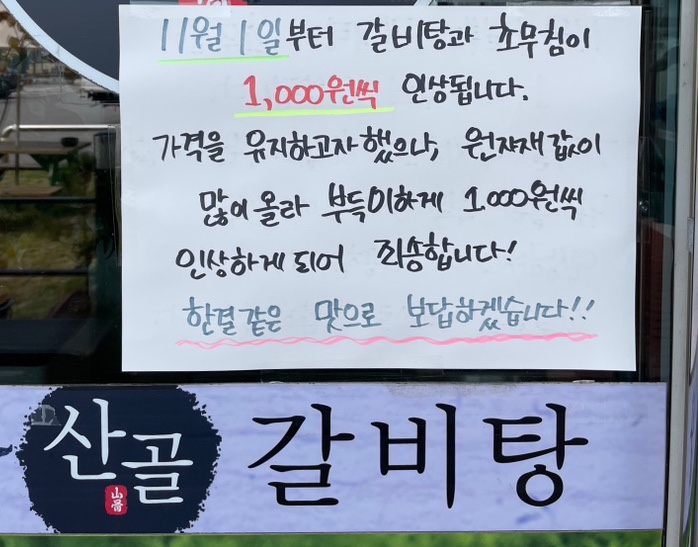 11월 1일부터 갈비탕과 초무침이
1,000원씩 인상됩니다.
가격을 유지하고자 했으나, 원자재값이
많이 올라 부득이하게 1.000원씩
인상하게 되어 죄송합니다!
한결같은 맛으로 보답하겠습니다!!
산골 갈비탕